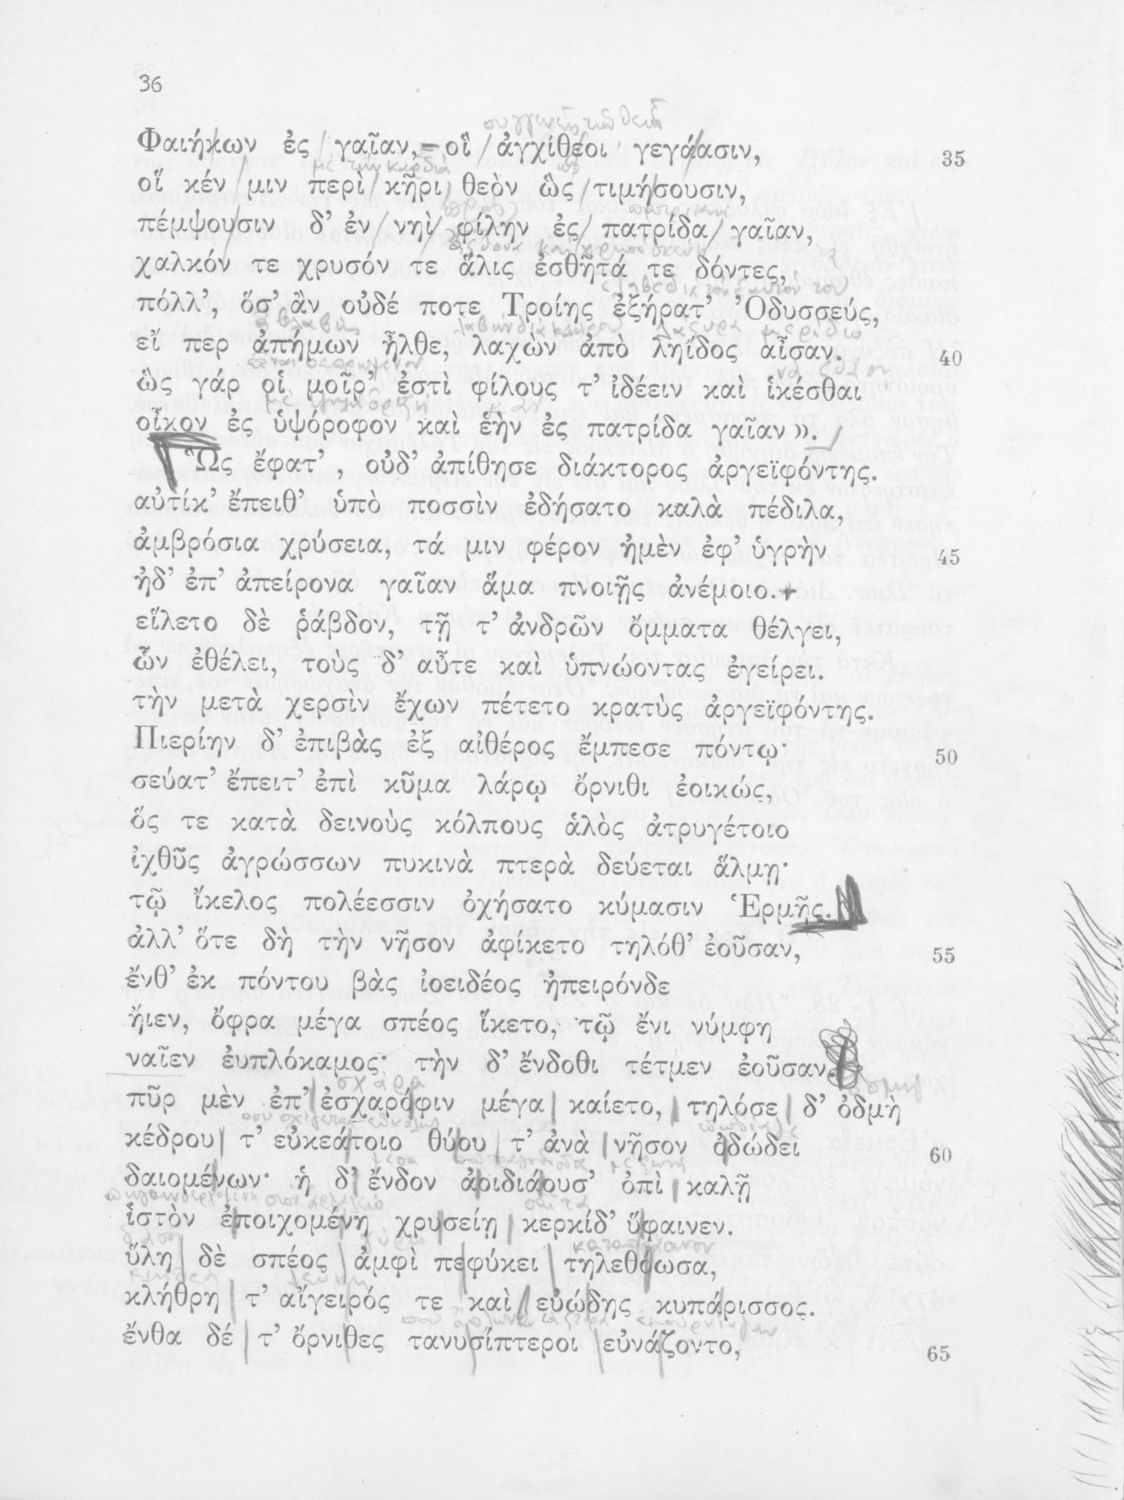 36
Φαιήκων ἐς γαῖαν, οἳ ἀγχίθεοι γεγάασιν, 35
οἵ κέν μιν περὶ κῆρι θεὸν ὣς τιμήσουσιν,
πέμψουσιν δ’ ἐν νηῒ φίλην ἐς πατρίδα γαῖαν,
χαλκόν τε χρυσόν τε ἅλις ἐσθῆτά τε δόντες,
πόλλ’, ὅσ’ ἂν οὐδέ ποτε Τροίης ἐξήρατ’ Ὀδυσσεύς,
εἴ περ ἀπήμων ἦλθε, λαχὼν ἀπὸ ληίδος αἶσαν. 40
ὣς γάρ οἱ μοῖρ’ ἐστὶ φίλους τ’ ἰδέειν καὶ ἱκέσθαι
οἶκον ἐς ὑψόροφον καὶ ἑὴν ἐς πατρίδα γαῖαν».
Ὣς ἔφατ’, οὐδ’ ἀπίθησε διάκτορος ἀργεϊφόντης.
αὐτίκ’ ἔπειθ’ ὑπὸ ποσσὶν ἐδήσατο καλὰ πέδιλα,
ἀμβρόσια χρύσεια, τά μιν φέρον ἠμὲν ἐφ’ ὑγρὴν 45
ἠδ’ ἐπ’ ἀπείρονα γαῖαν ἅμα πνοιῇς ἀνέμοιο.
εἵλετο δὲ ῥάβδον, τῇ τ’ ἀνδρῶν ὄμματα θέλγει,
ὧν ἐθέλει, τοὺς δ’ αὖτε καὶ ὑπνώοντας ἐγείρει.
τὴν μετὰ χερσὶν ἔχων πέτετο κρατὺς ἀργεϊφόντης.
Πιερίην δ’ ἐπιβὰς ἐξ αἰθέρος ἔμπεσε πόντῳ· 50
σεύατ’ ἔπειτ’ ἐπὶ κῦμα λάρῳ ὄρνιθι ἐοικώς,
ὅς τε κατὰ δεινοὺς κόλπους ἁλὸς ἀτρυγέτοιο
ἰχθῦς ἀγρώσσων πυκινὰ πτερὰ δεύεται ἅλμῃ·
τῷ ἴκελος πολέεσσιν ὀχήσατο κύμασιν Ἑρμῆς.
ἀλλ’ ὅτε δὴ τὴν νῆσον ἀφίκετο τηλόθ’ ἐοῦσαν, 55
ἔνθ’ ἐκ πόντου βὰς ἰοειδέος ἠπειρόνδε
ἤιεν, ὄφρα μέγα σπέος ἵκετο, τῷ ἔνι νύμφη
ναῖεν ἐυπλόκαμος· τὴν δ’ ἔνδοθι τέτμεν ἐοῦσαν
σχάρα
πῦρ μὲν ἐπ’ ἐσχαρόφιν μέγα καίετο, τηλόσε δ’ ὀδμὴ
κέδρου τ’ εὐκεάτοιο θύου τ’ ἀνὰ νῆσον ὀδώδει 60
δαιομένων· ἡ δ’ ἔνδον ἀοιδιάουσ’ ὀπὶ καλῇ
ἱστὸν ἐποιχομένη χρυσείῃ κερκίδ’ ὕφαινεν.
ὕλη δὲ σπέος ἀμφὶ πεφύκει τηλεθόωσα,
κλήθρη τ’ αἴγειρός τε καὶ εὐώδης κυπάρισσος.
ἔνθα δέ τ’ ὄρνιθες τανυσίπτεροι εὐνάζοντο, 65